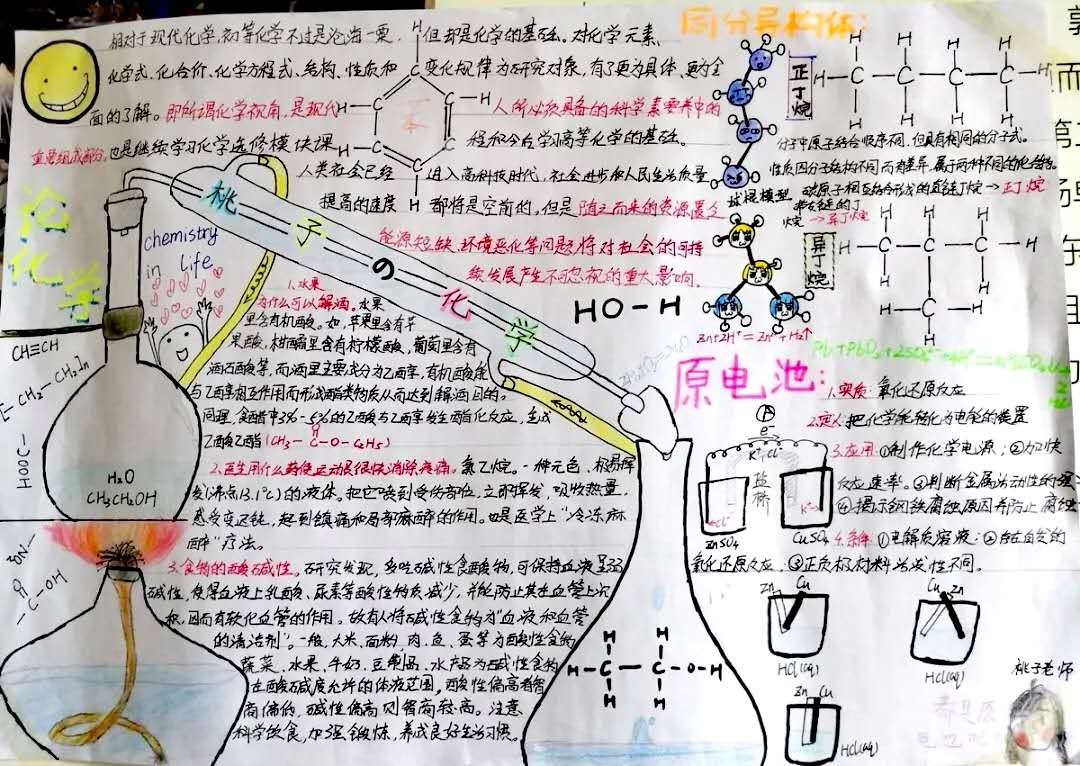 相对于现代化学,初等化学不过是沧海一粟,但却是化学的基础。对化学元素、
化学式、化合价、化学方程式、结构、性质和变化规律为研究对象,有了更为具体、更为全
面的了解。即所谓化学视角,是现代人所必须具备的科学素要养中的
重要组成部分,也是继续学习化学选修模块课程和今后学习高等化学的基础。
人类社会已经进入高科技时代,社会进步和人民生活质量
提高的速度都将是空前的,但是随之而来的资源匮乏
能源短缺、环境恶化等问题将对社会的可持
续发展产生不可忽视的重大影响。
苯
论
化学
桃子の化学
chemistry
in life
1.水果
为什么可以解酒。水果
里含有机酸。如,苹果里含有苹
果酸,柑橘里含有柠檬酸,葡萄里含有
酒石酸等,而酒里主要成分为乙醇,有机酸能
与乙醇相互作用而形成酯类物质从而达到解酒目的。
同理,食醋中3%-5%的乙酸与乙醇发生酯化反应,生成
乙酸乙酯(CH₃-C-O-C₂H₅)
2.医生用什么药使运动员很快消除疼痛。氯乙烷。一种无色、极易挥
发(沸点13.1℃)的液体。把它喷到受伤部位,立即挥发,吸收热量,
感受变迟钝,起到镇痛和局部麻醉的作用。也是医学上"冷冻麻
醉"疗法。
3.食物的酸碱性。研究发现,多吃碱性食酸物,可保持血液呈弱
碱性,使得血液上乳酸、尿素等酸性物质减少,并能防止其在血管上沉
积,因而有软化血管的作用。故有人将碱性食物为"血液和血管
的清洁剂"。一般,大米、面粉、肉、鱼、蛋等为酸性食物
蔬菜、水果、牛奶、豆制品、水产品为碱性食物
在酸碱度允许的体液范围,酸性偏高者智
商偏低,碱性偏高则智商较高。注意
科学饮食,加强锻炼,养成良好生活习惯。
CH≡CH
HOOC-
-C-OH
H₂O
CH₃CH₂OH
HO-H
同分异构体:
正丁烷
分子中原子结合顺序不同,但具有相同的分子式。
性质因分子结构不同而有差异,属于两种不同的化合物。
球棍模型
正丁烷
异丁烷
异丁烷
Zn+2H⁺=Zn²⁺+H₂↑
原电池:
1.实质:氧化还原反应
2.定义:把化学能转化为电能的装置
3.应用:①制作化学电源;②加快
反应速率。③判断金属活动性的强
④揭示钢铁腐蚀原因并防止腐蚀
4.条件:①电解质溶液;②自发的
氧化还原反应;③正负极材料活发性不同。
e⁻
K⁺Cl⁻
盐桥
Cl⁻
K⁺
ZnSO₄
CuSO₄
Zn Cu
HCl(aq)
Cu Zn
HCl(aq)
Zn Cu
HCl(aq)
桃子老师